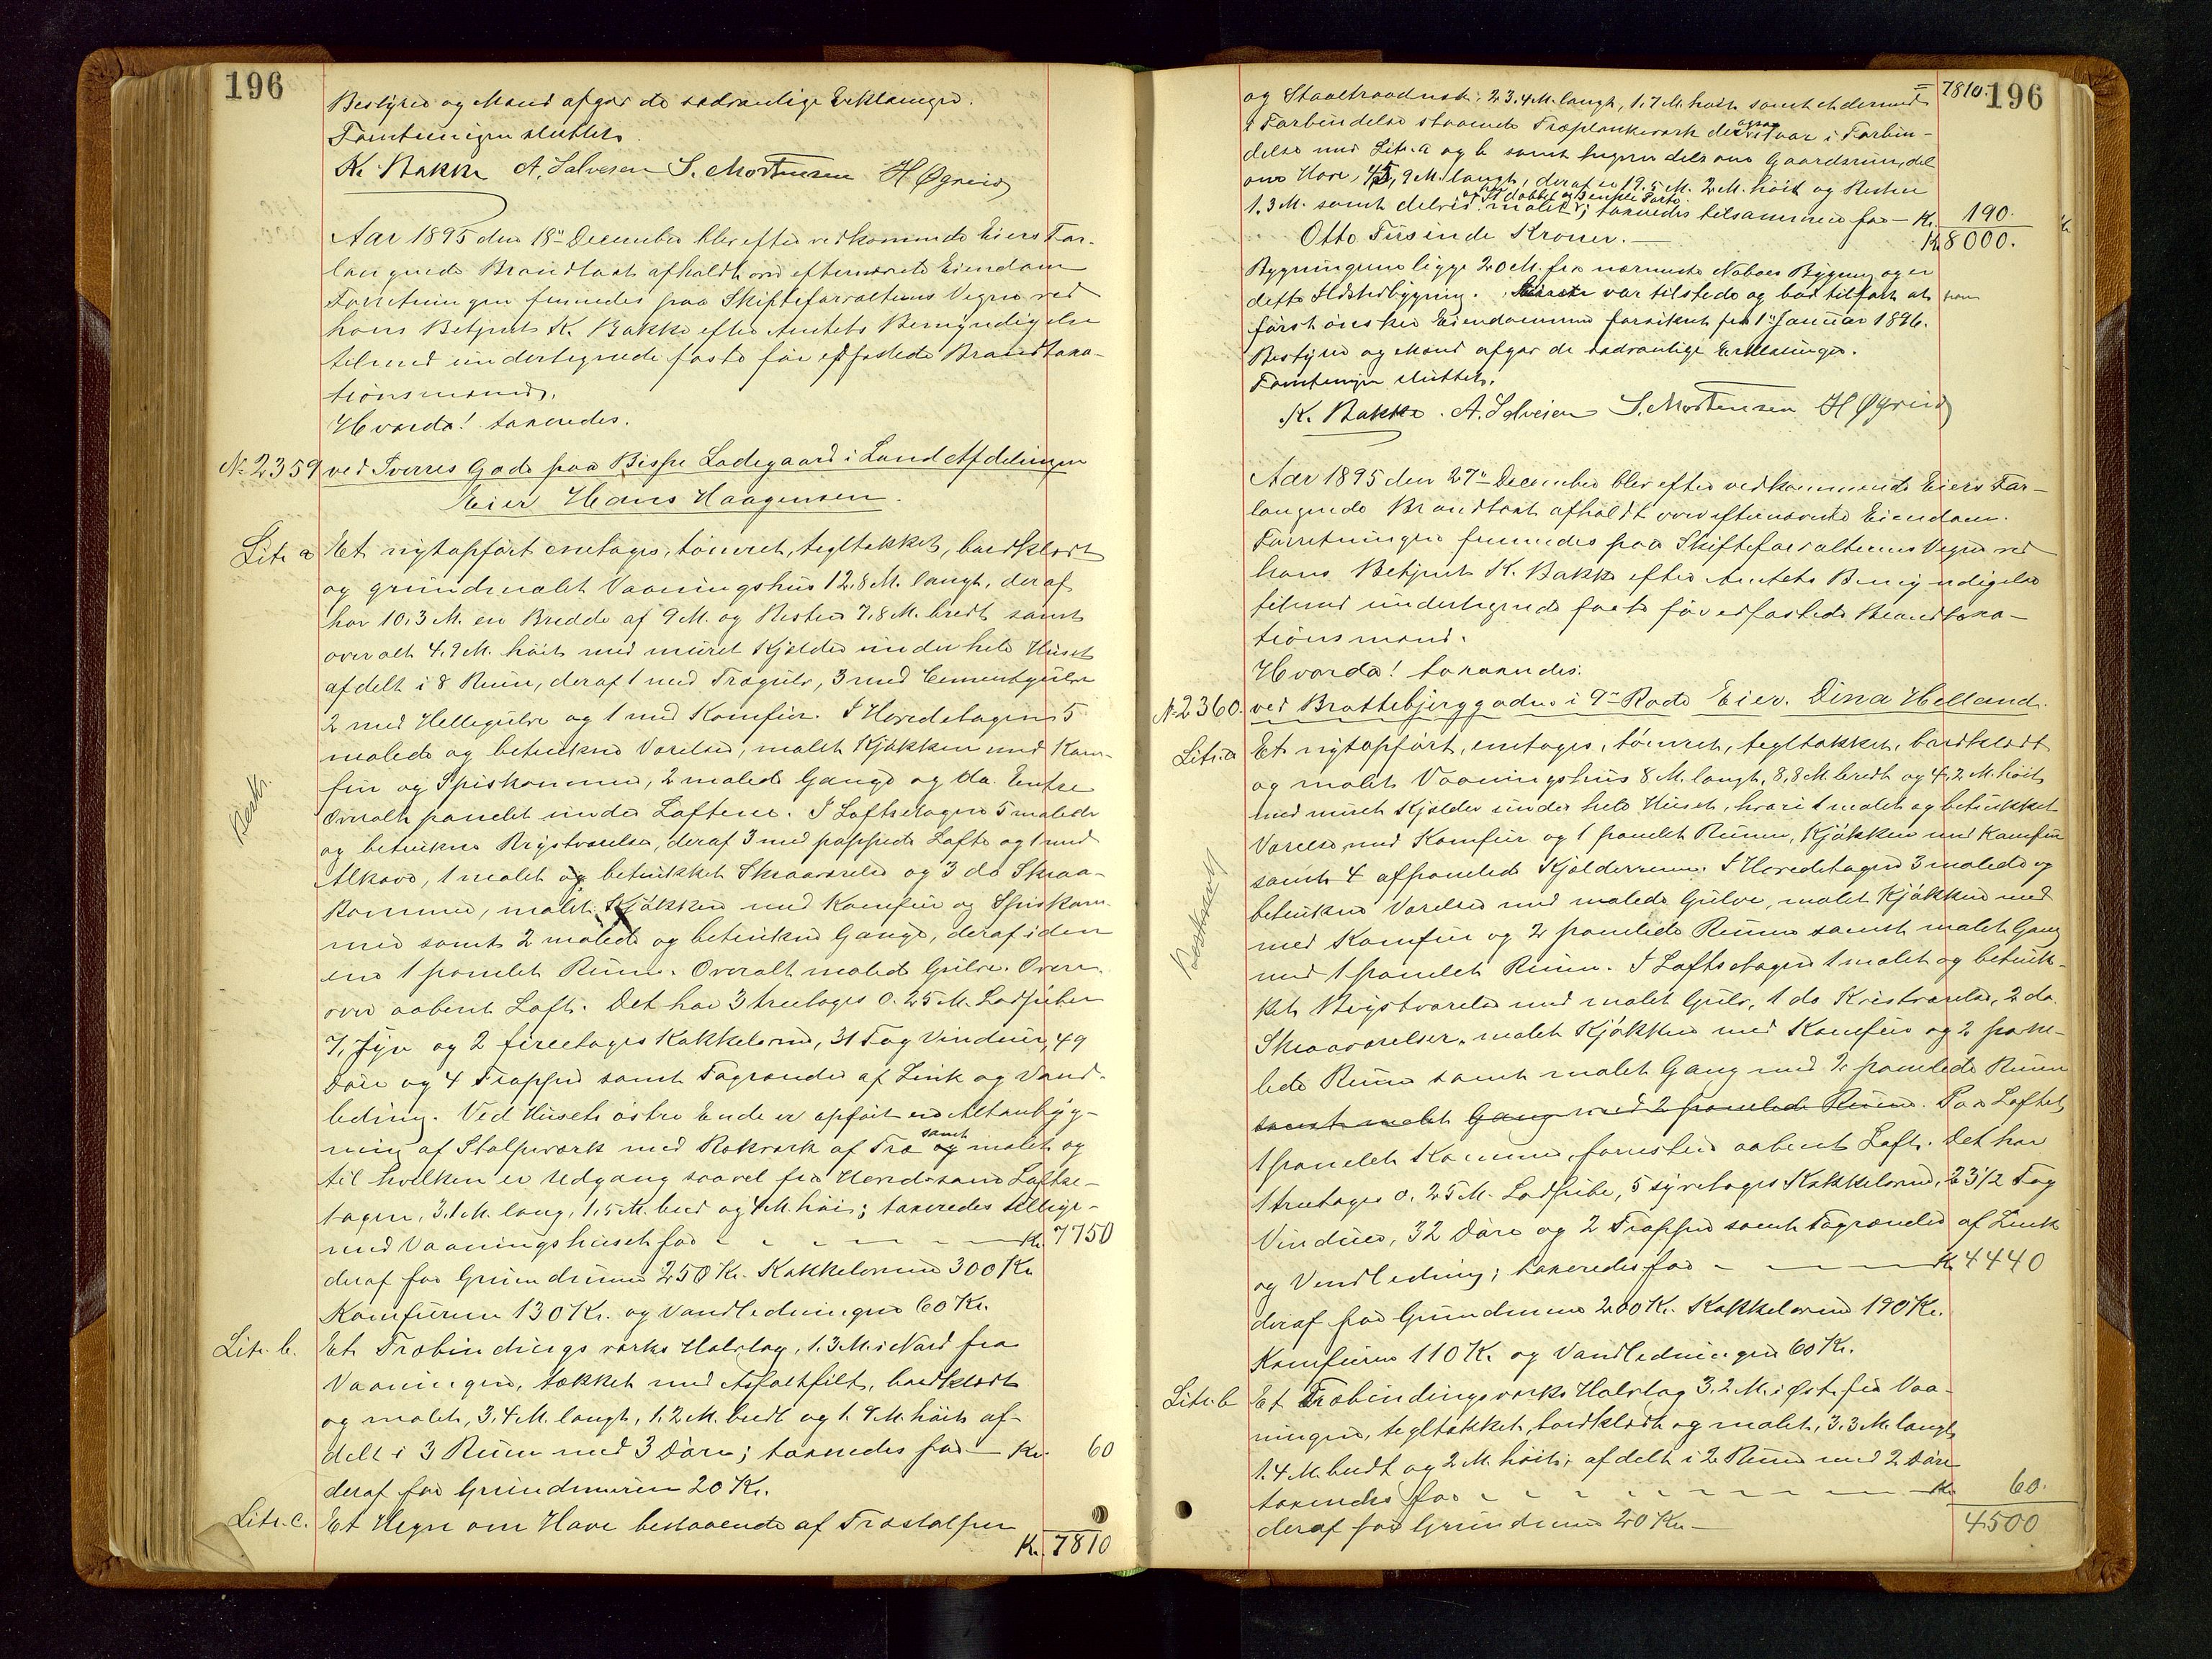 196
Bestyrer og Mænd afgav de sædvanlige Erklæringer.
Forretningen sluttet.
K. Bakke A. Salvesen S. Mortensen H Øgreid
Aar 1895 den 18de December blev efter vedkommende Eiers For-
langende Brandtaxt afholdt over efternævnte Eiendom
Forretningen fremmedes paa Skifteforvalterens Vegne ved
hans Betjent K. Bakke efter Amtets Bemyndigelse
tilmed undertegnede faste før edfæstede Brandtaxa-
tionsmænd.
Hvorda! taxeredes.
No 2359 ved Sverres Gade paa Bispe Ladegaard i Land Afdelingen
Eier Hans Haagensen.
Litr a Et nytopført enetages, tømret, tegltækket, bordklædt
og grundmalet Vaaningshus 12,8 M. langt, deraf
har 10,3 M. en Bredde af 9 M. og Resten 7,8 M. bredt samt
overalt 4.9 M. höit med muret Kjelder under hele Huset
afdelt i 8 Rum, deraf 1 med Trægulv, 3 med Cementgulve
2 med Hellegulve og 1 med Komfur. I Hovedetagen 5
malede og betrukne Værelser, malet Kjøkken med Kom-
fur og Spiskammer, 2 malede Gange og do. Entre
Overalt panelet under Loftene. I Loftsetagen 5 malede
og betrukne Brystværelser, deraf 3 med pappede Lofte og 1 med
Alkove, 1 malet og betrukket Skraaværelse og 3 do Skraa-
Kammer, malet Kjøkken med Komfur og Spiskam-
mer samt 2 malede og betrukne Gange, deraf i den
ene 1 panelet Rum. Overalt malede Gulve. Oven-
over aabent Loft. Det har 3 treetages 0.25 M. Lodpiber
7, fyr og 2 fireetages Kakkelovne, 31 Fag Vinduer, 49
Døre og 4 Trapper samt Tagrender af Zink og Vand-
ledning. Ved Husets østre Ende er opført en Altanbyg-
ning af Stolpeværk med Rækværk af Træ og samt malet og
til hvilken er Udgang saavel fra Hoved- som Loftse-
tagen, 3.1 M. lang, 1.5 M. bred og 4 M. høi; taxeredes tillige-
med Vaaningshuset for - - - - - Kr. 7750
deraf for Grundmuren 250 Kr. Kakkelovnene 300 Kr
Komfurene 130 Kr. og Vandledningen 60 Kr.
Litr. b. Et Træbindings værks Halvtag, 1.3 M. i Nord fra
Vaaningen, tækket med Asfaltfilt, bordklædt
og malet, 3,4 M. langt, 1.2 M. bredt og 1.9 M. höit af-
delt i 3 Rum med 3 Døre; taxeredes for - Kr. 60
deraf for Grundmuren 20 Kr.
Litr. c. Et Hegn om Have bestaaende af Træstolper
Kr. 7810
196
7810
og Staaltraadnet, 23.4 M. langt, 1.7 M. høit samt et dermed
i Forbindelse staaende Træplankeværk der ogsaa staar i Forbin-
delse med Litr. a og b samt hegner dels om Gaardsrum, del
om Have, 45,9 M. langt, deraf er 19.5 M. 2 M. höit og Resten
1.3 M. samt delvis malet og har 1 dobbelt og 3 enkle Porte; taxeredes tilsammen for - Kr. 190.
Otto Tusinde Kroner. — Kr 8000.
Bygningerne ligge 20 M. fra nærmeste Naboes Bygning og er
dette Ildstedbygning. var tilstede og bad tilført at han
først ønsker Eiendommen forsikret fra 1ste Januar 1896.
Bestyrer og Mænd afgav de sædvanlige Erklæringer.
Forretningen sluttet.
K. Bakke. A. Salvesen S. Mortensen H Øgreid
Aar 1895 den 27de December blev efter vedkommende Eiers For-
langende Brandtaxt afholdt over efternævnte Eiendom.
Forretningen fremmedes paa Skifteforvalterens Vegne ved
hans Betjent K. Bakke efter Amtets Bemyndigelse
tilmed undertegnede faste før edfæstede Brandtaxa-
tionsmænd.
Hvorda! taxeredes.
No 2360. ved Brattebjerggaden i 9de Rode Eier. Dina Helland.
Litr. a Et nytopført, enetages, tømret, tegltækket, bordklædt
og malet Vaaningshus 8 M. langt, 8,8 M. bredt og 4,2 M. höit
med muret Kjelder under hele Huset, hvori 1 malet og betrukket
Værelse med Komfur og 1 panelet Rum, Kjøkken med Komfur
samt 4 afpanelede Kjelderrum. I Hovedetagen 3 malede og
betrukne Værelser med malede Gulve, malet Kjøkken med
med Komfur og 2 panelede Rum samt malet Gang
med 1 panelet Rum. I Loftsetagen 1 malet og betruk-
ket Brystværelse med malet Gulv, 1 do Kvistværelse, 2 do
Skraaværelser, malet Kjøkken med Komfur og 2 pane-
lede Rum samt malet Gang med 2 panelede Rum
samt malet Gang med 2 panelede Rum. Paa Loftet
1 panelet Kammer, forresten aabent Loft. Det har
1 treetages 0.25 M. Lodpibe, 5 syvetages Kakkelovne, 23 1/2 Fag
Vinduer, 32 Døre og 2 Trapper samt Tagrender af Zink
og Vandledning; taxeredes for - - - Kr 4440
deraf for Grundmuren 200 Kr. Kakkelovnene 190 Kr.
Komfurene 110 Kr. og Vandledningen 60 Kr.
Litr. b Et Træbindingsværks Halvtag 3.2 M. i Øst fra Vaa-
ningen, tegltækket, bordklædt og malet, 3.3 M. langt
1.4 M. bredt og 2 M. höit; afdelt i 2 Rum med 2 Døre
taxeredes for - - - - - - Kr 60.
deraf for Grundmuren 20 Kr. — 4500